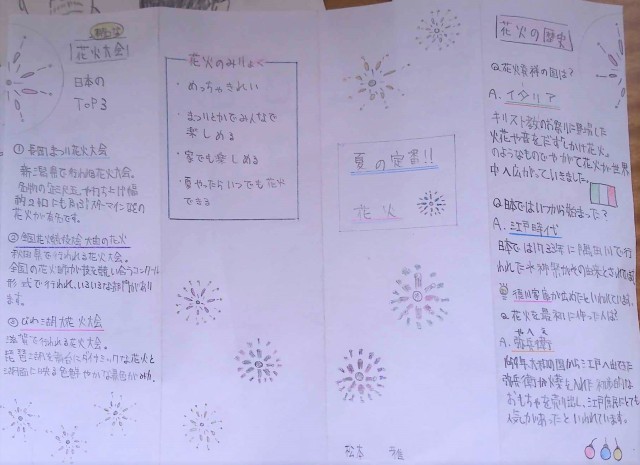 有名な
花火大会!
日本の
TOP3
① 長岡まつり花火大会
新潟県で行われる花火大会。
名物の正三尺玉や打ち上げ幅
約2kmにも及ぶスターマインなどの
花火が有名です。
② 全国花火競技大会 大曲の花火
秋田県で行われる花火大会。
全国の花火師が技を競い合うコンクール
形式で行われ、いろいろな部門があり
ます。
③ びわ湖大花火大会
滋賀で行われる花火大会。
琵琶湖を舞台にダイナミックな花火と
湖面に映る色鮮やかな景色がみりょく
花火のみりょく
・めっちゃきれい
・まつりとかでみんなで
楽しめる
・家でも楽しめる
・夏やったらいつでも花火
できる
夏の定番!!
花火
松本 雅
花火の歴史
Q.花火発祥の国は?
A.イタリア
キリスト教のお祭りに登場した
火花や音をだす「しかけ花火」
のようなものでやがて花火が世界
中へ広がっていきました。
Q.日本ではいつから始まった?
A.江戸時代
日本では1733年に隅田川で行
われた水神祭がその由来とされています。
徳川家康が広めたといわれています。
Q.花火を最初に作った人は?
やへえ
A.弥兵衛
1659年大和の国から江戸へ出てきた
弥兵衛が火薬を入れた初歩的な
おもちゃを売り出し、江戸庶民にとても
人気があったといわれています。